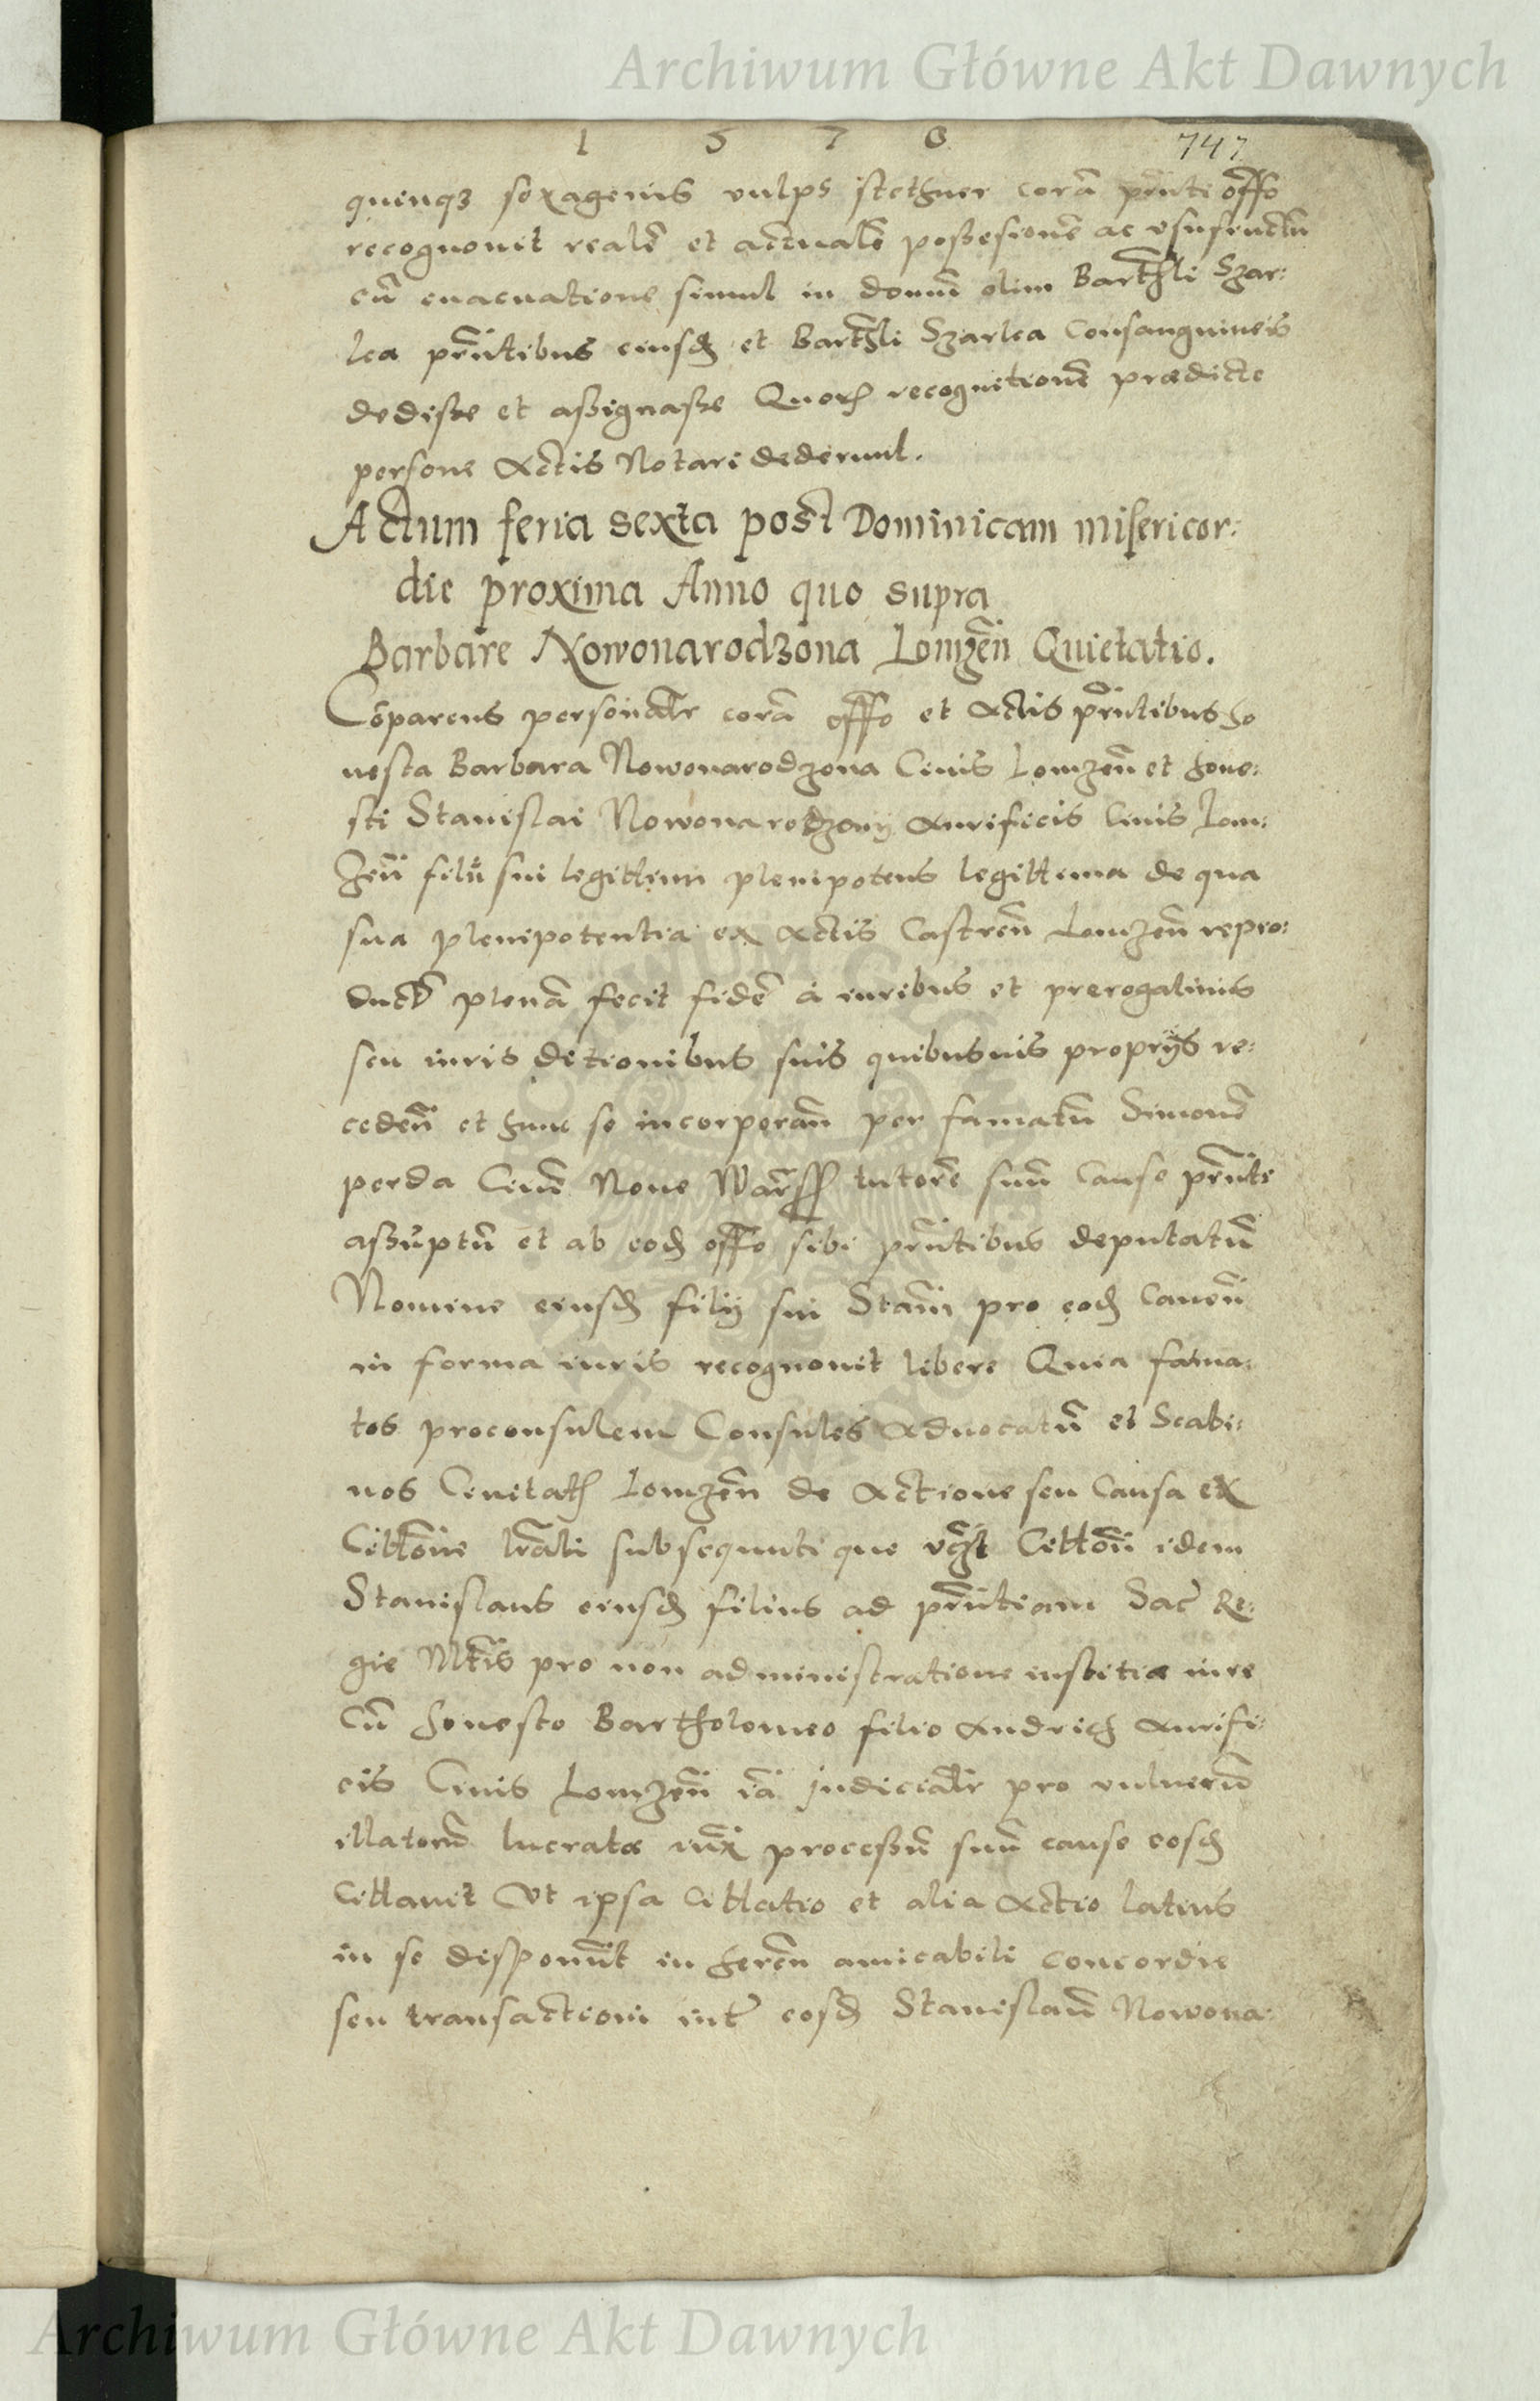 Archiwum Główne Akt Dawnych
1 5 7 8
747
quinqz sexagenis vulps stethner corā pn̄ti offo
recognouit realē et actualē possesionē ac vsufructū
cū euacuatione simul in domū olim Barthli Szar:
lea pn̄tibus eiusd et Barthli Szarlea Consanguineis
dedisse et assignasse Quor recognitionē prædicte
persone Actis Notari dederunt.
Actum feria sexta post Dominicam misericor:
die proxima Anno quo supra
Barbare Nowonarodzona Lomzen̄ Quietatio.
Cōparens personalr corā offo et Actis pn̄tibus ho
nesta Barbara Nowonarodzona Ciuis Lomzen̄ et hone:
sti Stanislai Nowonarodzony Aurificis Ciuis Lom:
zen̄ filii sui legittimi plenipotens legittima de qua
sua plenipotentia ex Actis Castren̄ Lomzen̄ repro:
duct plenā fecit fidē à iuribus et prerogatiuis
seu iuris ditionibus suis quibusuis proprijs re:
ceden̄ et hunc se incorporan̄ per famatū Simonē
perda Ciuē Noue Warss tutorē suū Cause pn̄ti
assūptū et ab eod offo sibi pn̄tibus deputatū
Nomine eiusd filij sui Stani pro eod Cauen̄
in forma iuris recognouit libere Quia fama:
tos proconsulem Consules Aduocatū et Scabi:
nos Ciuitat Lomzen̄ de Actione seu Causa ex
Cittōne lrāli subsequuti que vigt Cittōn̄ idem
Stanislaus eiusd filius ad pn̄tiam Sac Re:
gie Mtis pro non administratione iustitiæ in re
Cū honesto Bartholomeo filio Andrich Aurifi:
cis Ciuis Lomzen̄ iā judicialr pro vulnerū
illatorū lucrata iux processū suū cause eosd
Cittauit Vt ipsa Cittatio et alia Actio latius
in se disponūt in heren̄ amicabili concordie
seu transactioni inter eosd Stanislaū Nowona:
Archiwum Główne Akt Dawnych